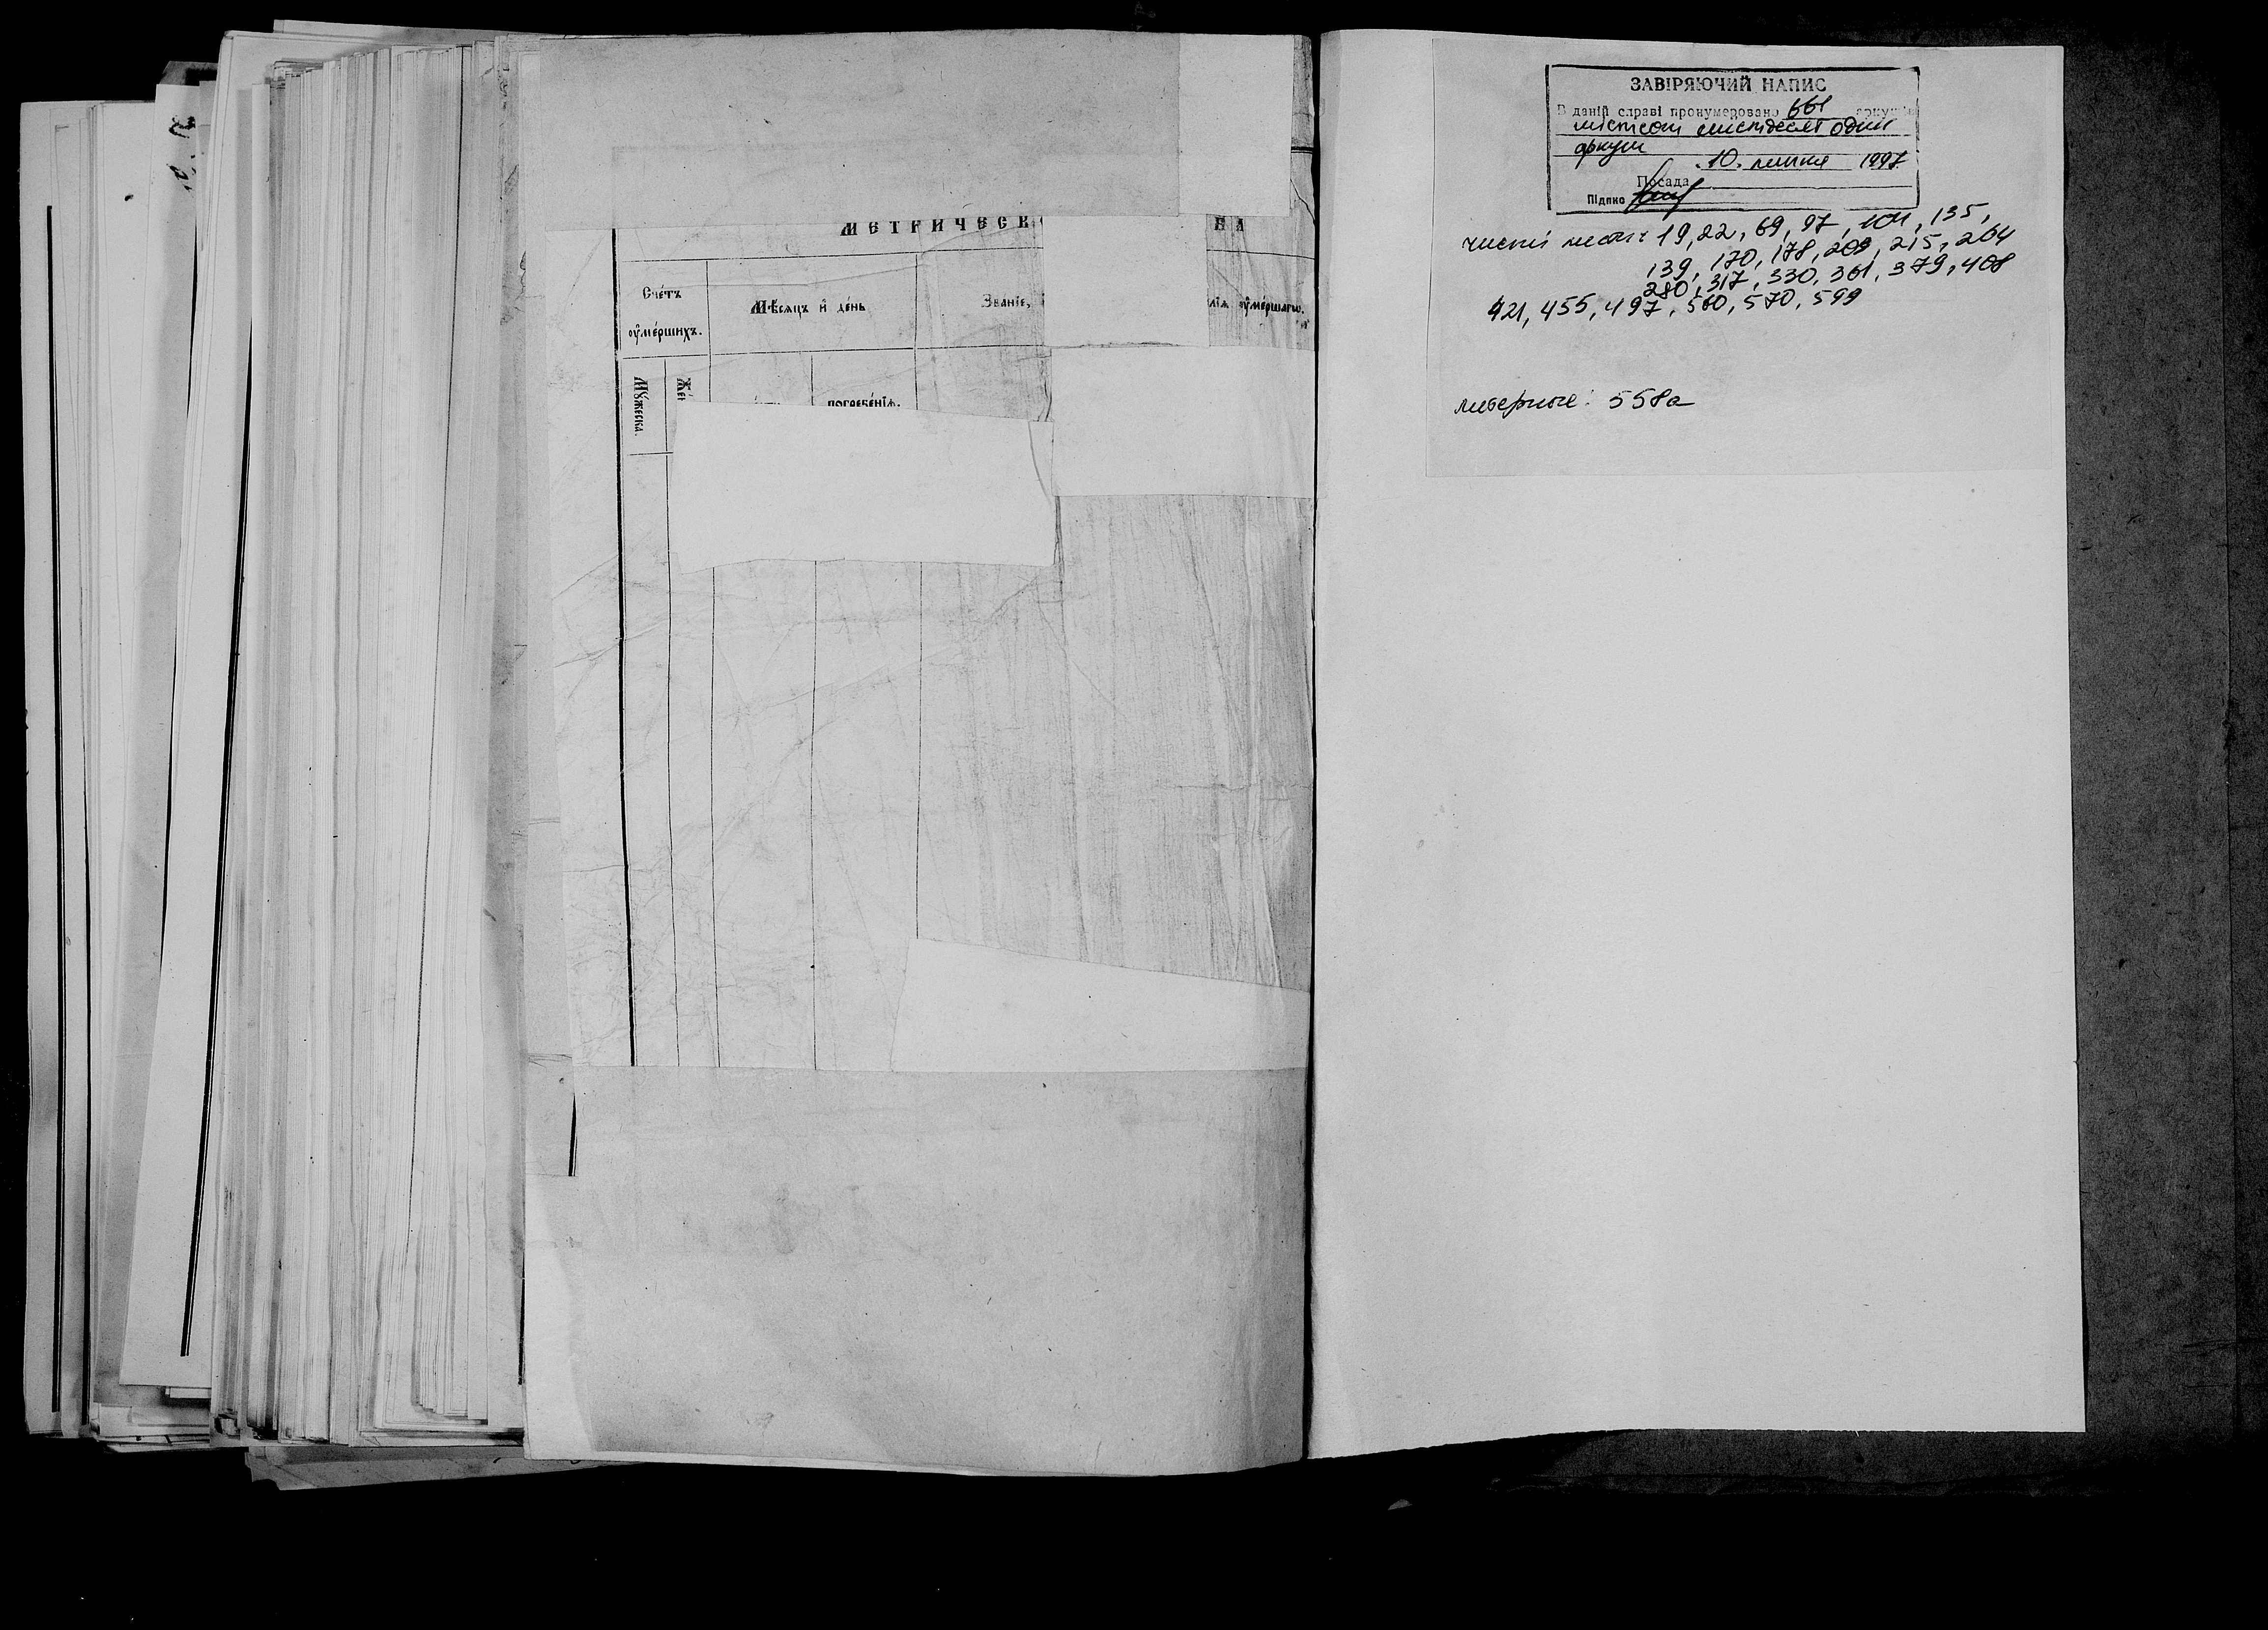 МЕТРИЧЕСК
Счéтъ
оу҆мéршихъ.
Мѣсяцъ и҆ дéнь
Званіе,
оу҆мéршагѡ.
Мꙋжеска.
Же
погребéнїѧ.
ЗАВІРЯЮЧИЙ НАПИС
В даній справі пронумеровано 661 аркушів
шістсот шістдесят один
аркуш
10 липня 1997
Посада
Підпис
чисті листи: 19, 22, 69, 97, 101, 135,
139, 170, 178, 209, 215, 264
280, 317, 330, 361, 379, 408
421, 455, 497, 560, 570, 599
литерные: 558а